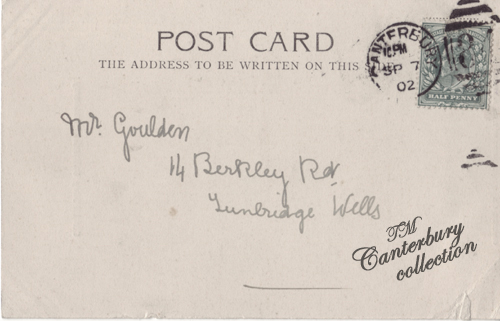 POST CARD
THE ADDRESS TO BE WRITTEN ON THIS
CANTERBURY
10.PM
SP 7
02
HALF PENNY
Mr. Goulden
14 Berkley Rd.
Tunbridge Wells
TM
Canterbury
collection